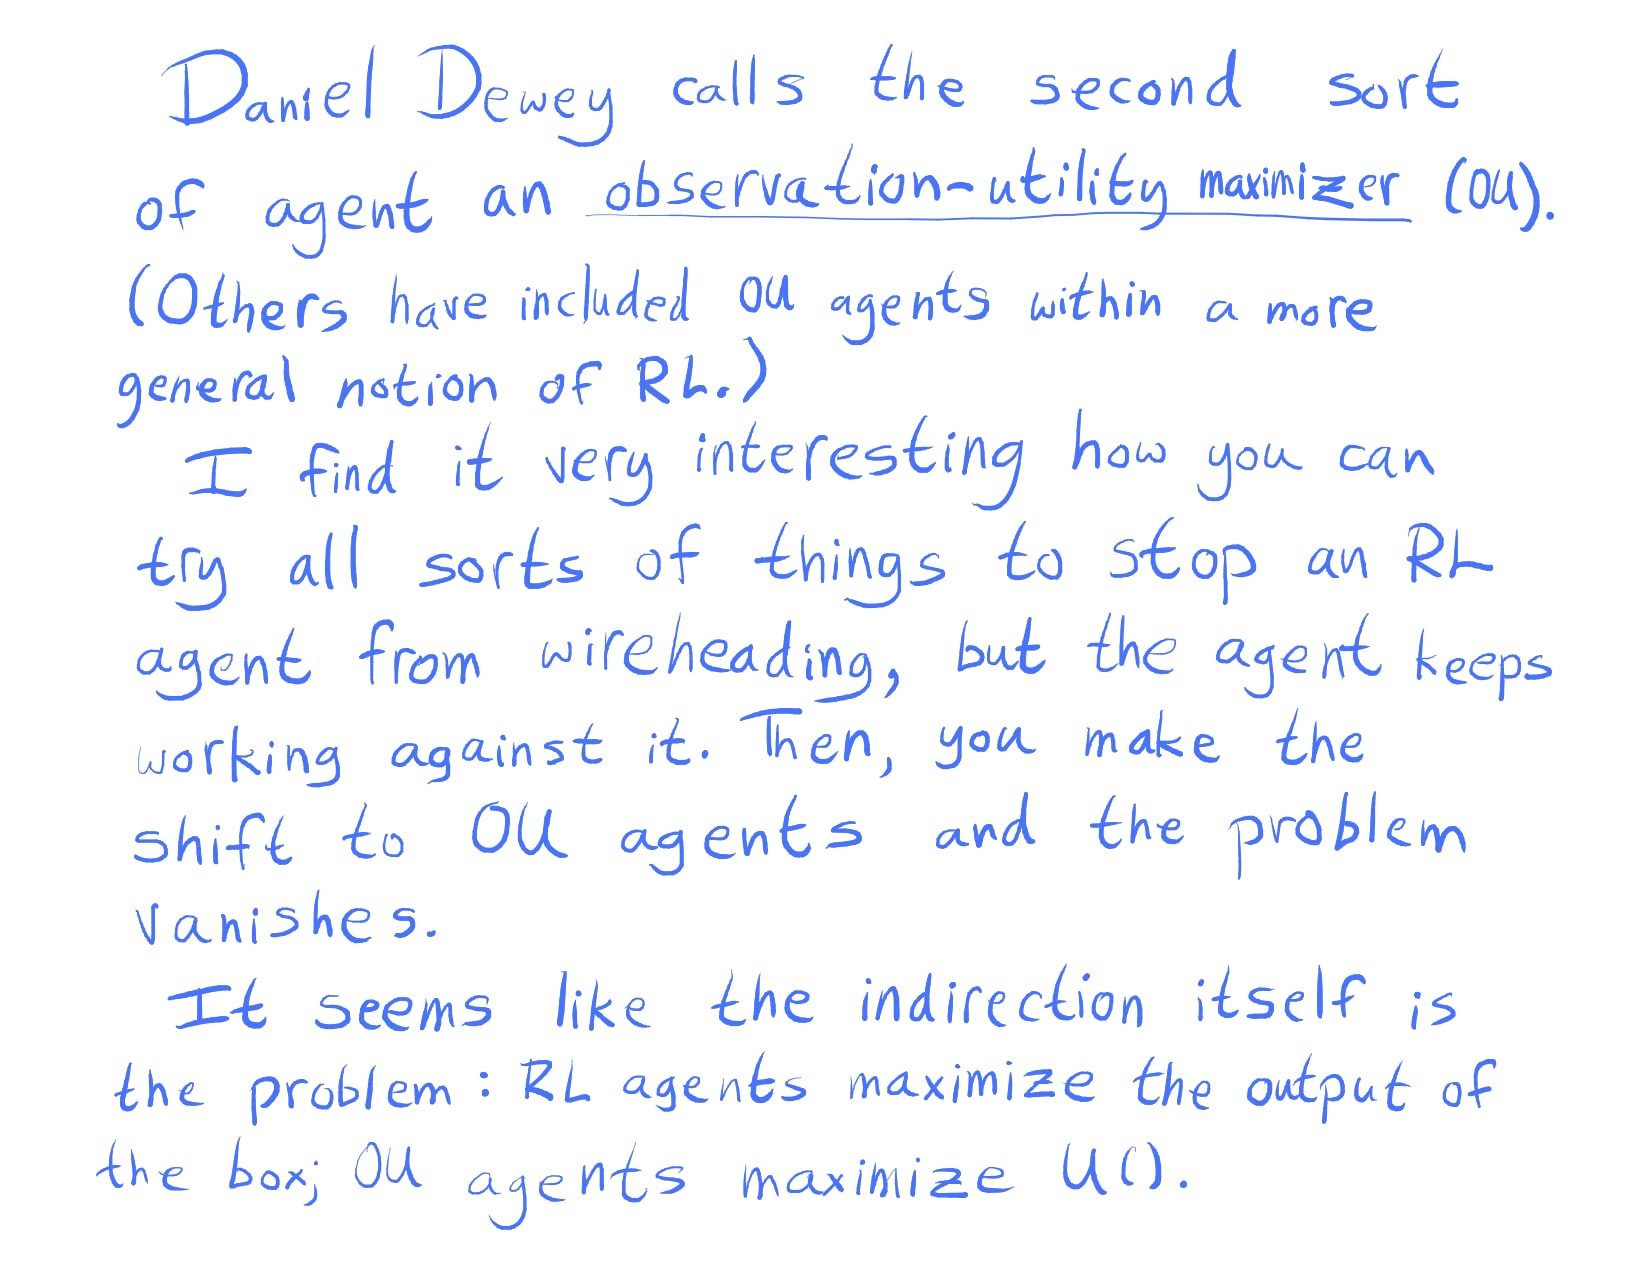 Daniel Dewey calls the second sort
of agent an observation-utility maximizer (OU).
(Others have included OU agents within a more
general notion of RL.)
I find it very interesting how you can
try all sorts of things to stop an RL
agent from wireheading, but the agent keeps
working against it. Then, you make the
shift to OU agents and the problem
vanishes.
It seems like the indirection itself is
the problem: RL agents maximize the output of
the box; OU agents maximize U().